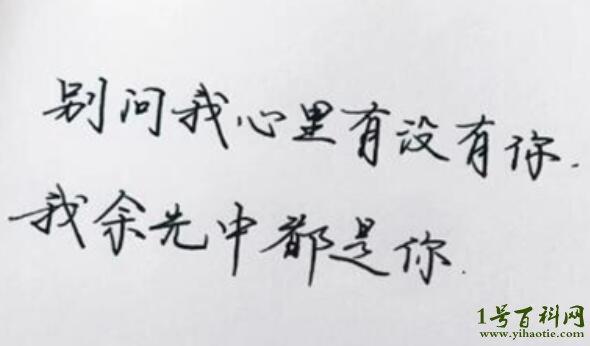 别问我心里有没有你.
我余先中都是你.
1号百科网
www.yihaotie.com